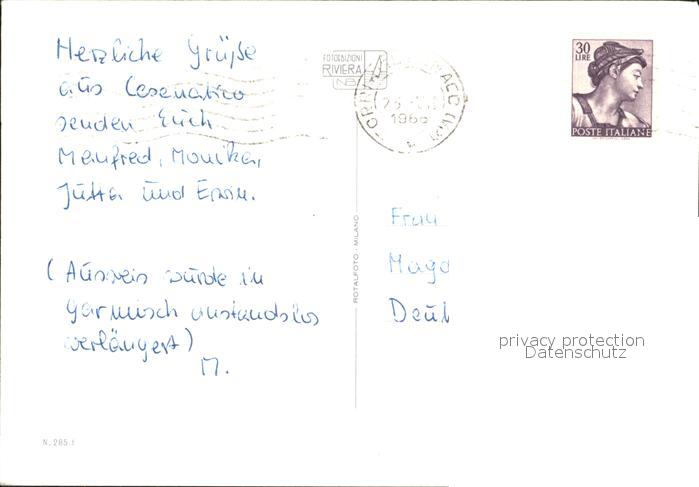 Herzliche Grüße
aus Cesenatico
senden Euch
Manfred, Monika,
Jutta und Erwin.
(Ausweis wurde in
Garmisch anstandslos
verlängert)
M.
FOTOEDIZIONI
RIVIERA
1966
30
LIRE
POSTE ITALIANE
ROTALFOTO - MILANO
Frau
Magd
Deut
privacy protection
Datenschutz
N. 285.